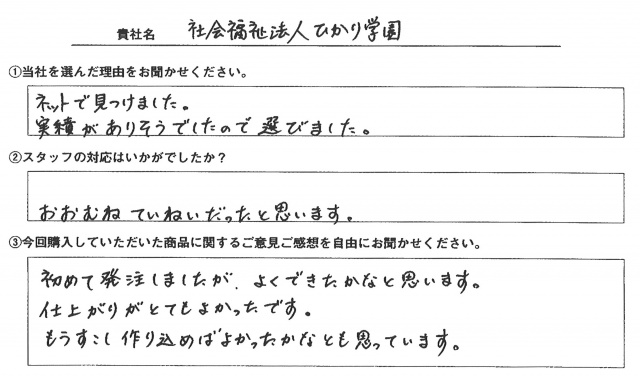 貴社名 社会福祉法人ひかり学園
①当社を選んだ理由をお聞かせください。
ネットで見つけました。
実績がありそうでしたので選びました。
②スタッフの対応はいかがでしたか？
おおむねていねいだったと思います。
③今回購入していただいた商品に関するご意見ご感想を自由にお聞かせください。
初めて発注しましたが、よくできたかなと思います。
仕上がりがとてもよかったです。
もうすこし作り込めばよかったかなとも思っています。